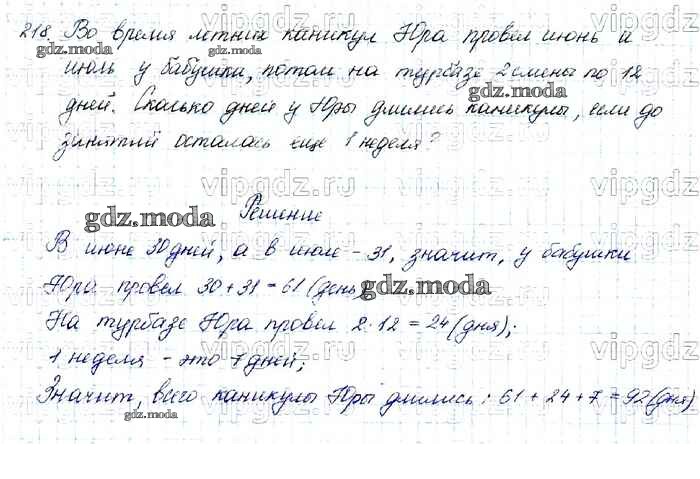 218. Во время летних каникул Юра провел июнь и
июль у бабушки, потом на турбазе 2 смены по 12
дней. Сколько дней у Юры длились каникулы, если до
занятий осталась еще 1 неделя?
Решение
В июне 30 дней, а в июле - 31, значит, у бабушки
Юра провел 30 + 31 = 61 (день)
На турбазе Юра провел 2 · 12 = 24 (дня);
1 неделя - это 7 дней;
Значит, всего каникулы Юры длились: 61 + 24 + 7 = 92 (дня)
gdz.moda
gdz.moda
gdz.moda
gdz.moda
gdz.moda
gdz.moda
gdz.moda
vipgdz.ru